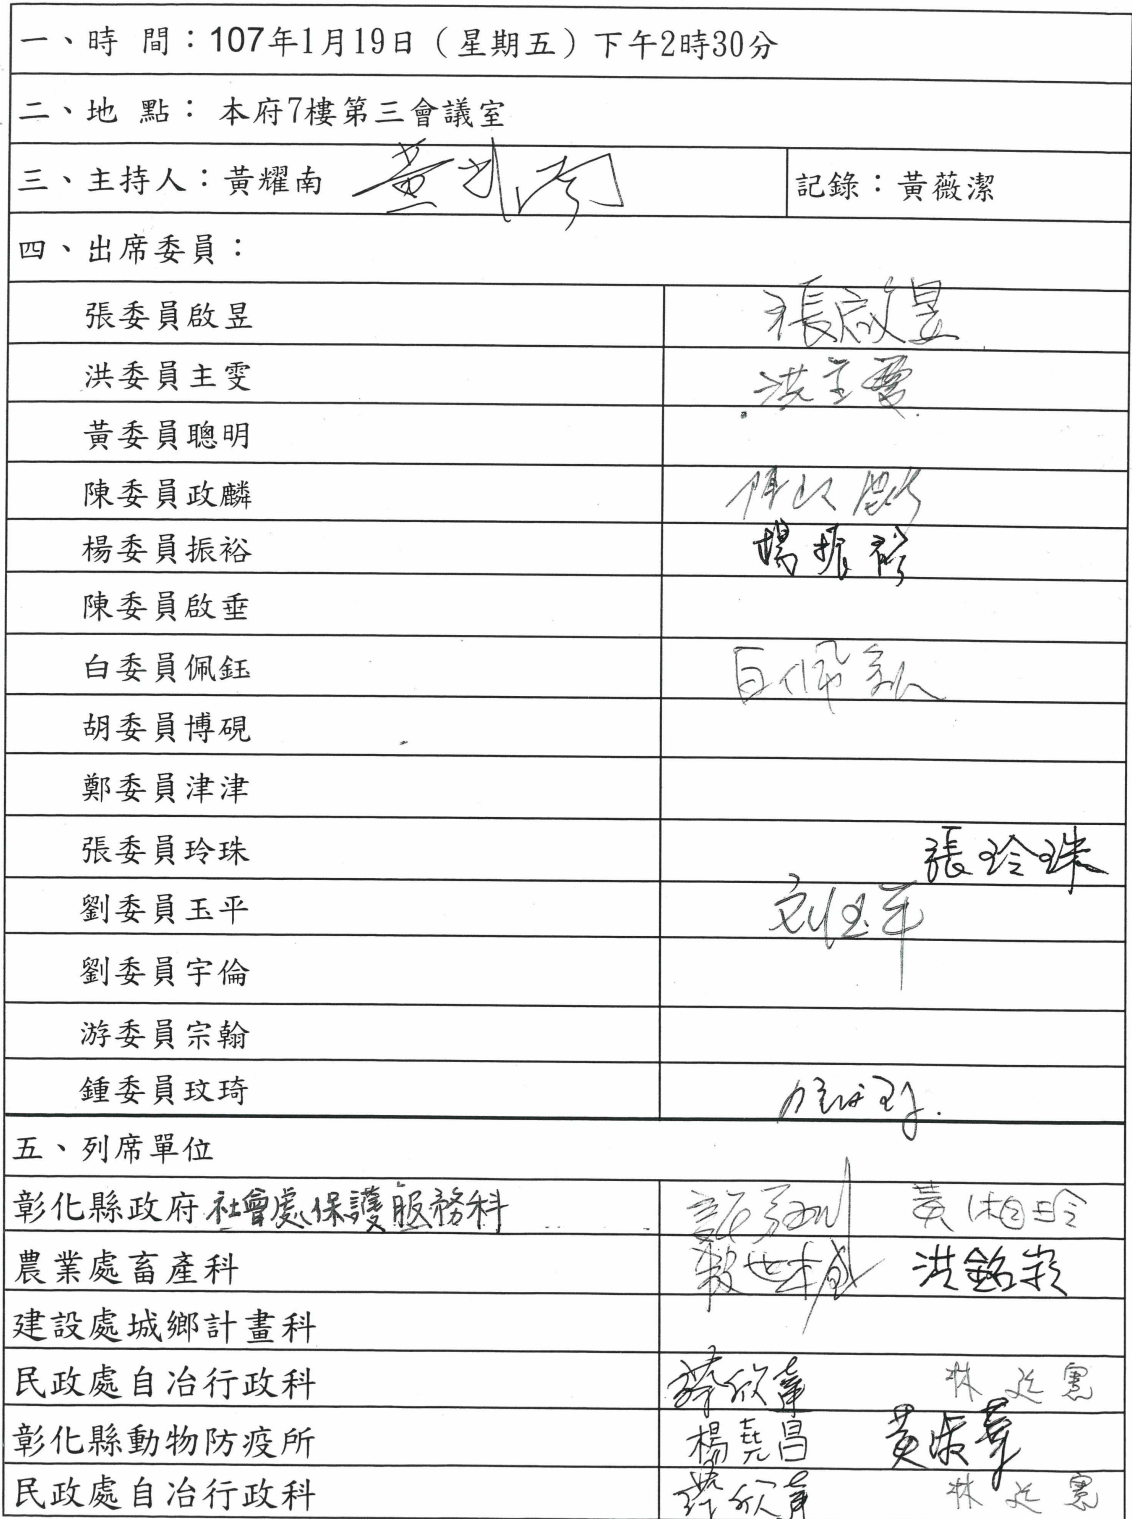 一、時 間：107年1月19日（星期五）下午2時30分
二、地 點： 本府7樓第三會議室
三、主持人：黃耀南 記錄：黃薇潔
四、出席委員：
張委員啟昱 張啟昱
洪委員主雯 洪主雯
黃委員聰明
陳委員政麟
楊委員振裕 楊振裕
陳委員啟垂
白委員佩鈺 白佩鈺
胡委員博硯
鄭委員津津
張委員玲珠 張玲珠
劉委員玉平 刘玉平
劉委員宇倫
游委員宗翰
鍾委員玟琦
五、列席單位
彰化縣政府 社會處保護服務科 黃湘玲
農業處畜產科 洪銘
建設處城鄉計畫科
民政處自治行政科 蔡欣 林廷憲
彰化縣動物防疫所 楊堯昌 黃淑
民政處自治行政科 蔡欣 林廷憲